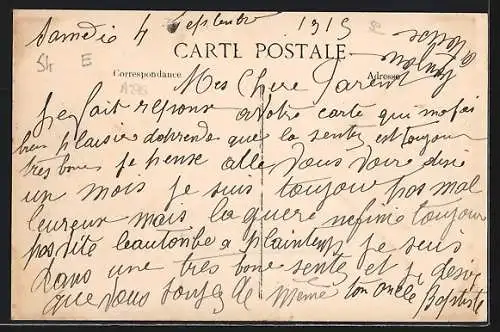 Samedie 4 Septembre 1915
CARTE POSTALE
Correspondance
Adresse
54 E
Mes Chere Parent
Je fait reponse a votre carte qui ma fai
tres plaisie daprende que la sente est toujour
tres bone je pense alle vous voir disi
un mois je suis toujour pas mal
leureux mais la guere ne fini toujour
pas vite beautonbe a plaintemp je suis
dans une tres bone sente et je desire
que vous soyez de meme ton oncle Baptiste